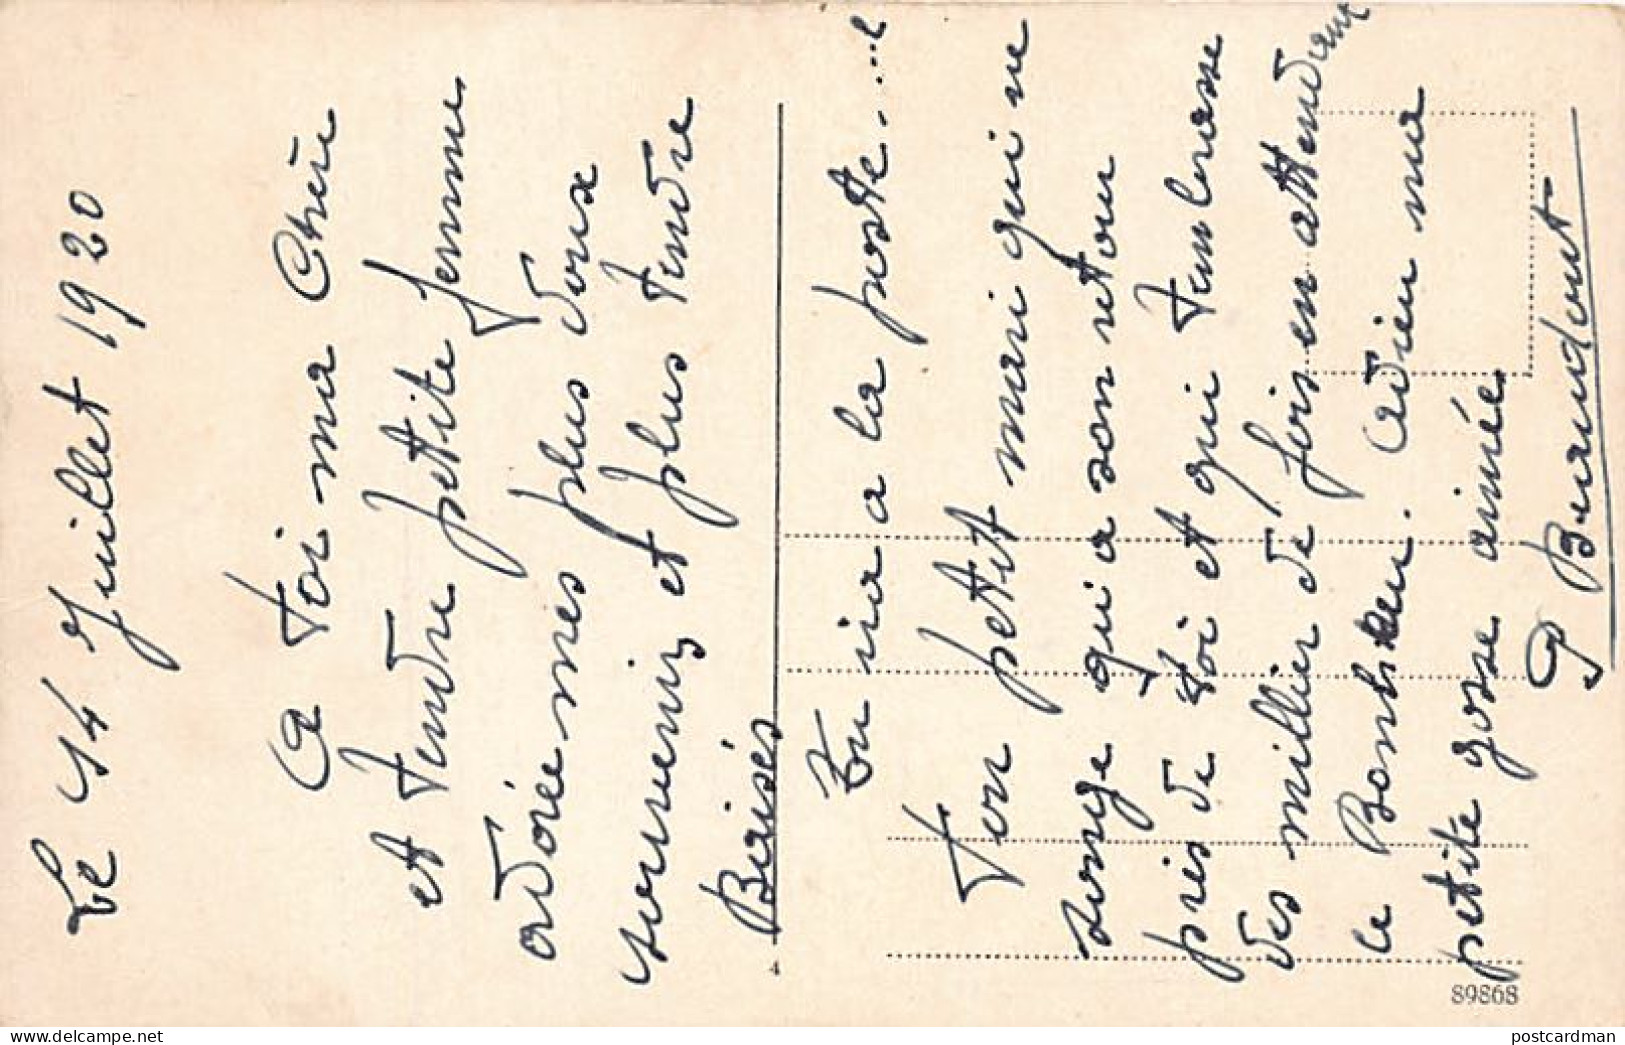 Le 14 Juillet 1920
A toi ma Chère
et tendre petite femme
adorée mes plus doux
souvenirs et plus tendre
Baisés
Ton petit mari qui ne
songe qu'a son retour
près de toi et qui t'embrasse
des millier de fois en attendant
le Bonheur. Adieu ma
petite gosse aimée
4
89868
postcardman